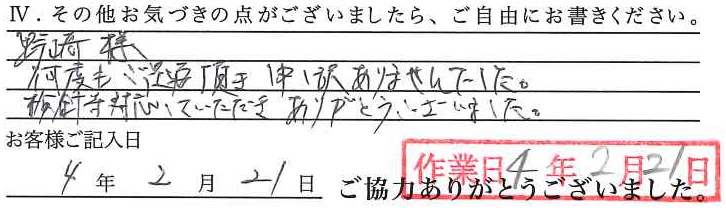 Ⅳ．その他お気づきの点がございましたら、ご自由にお書きください。
崎様
何度もご連絡頂き申し訳ありませんでした。
等対応していただきありがとうございました。
お客様ご記入日
4年2月21日
作業日4年2月21日
ご協力ありがとうございました。